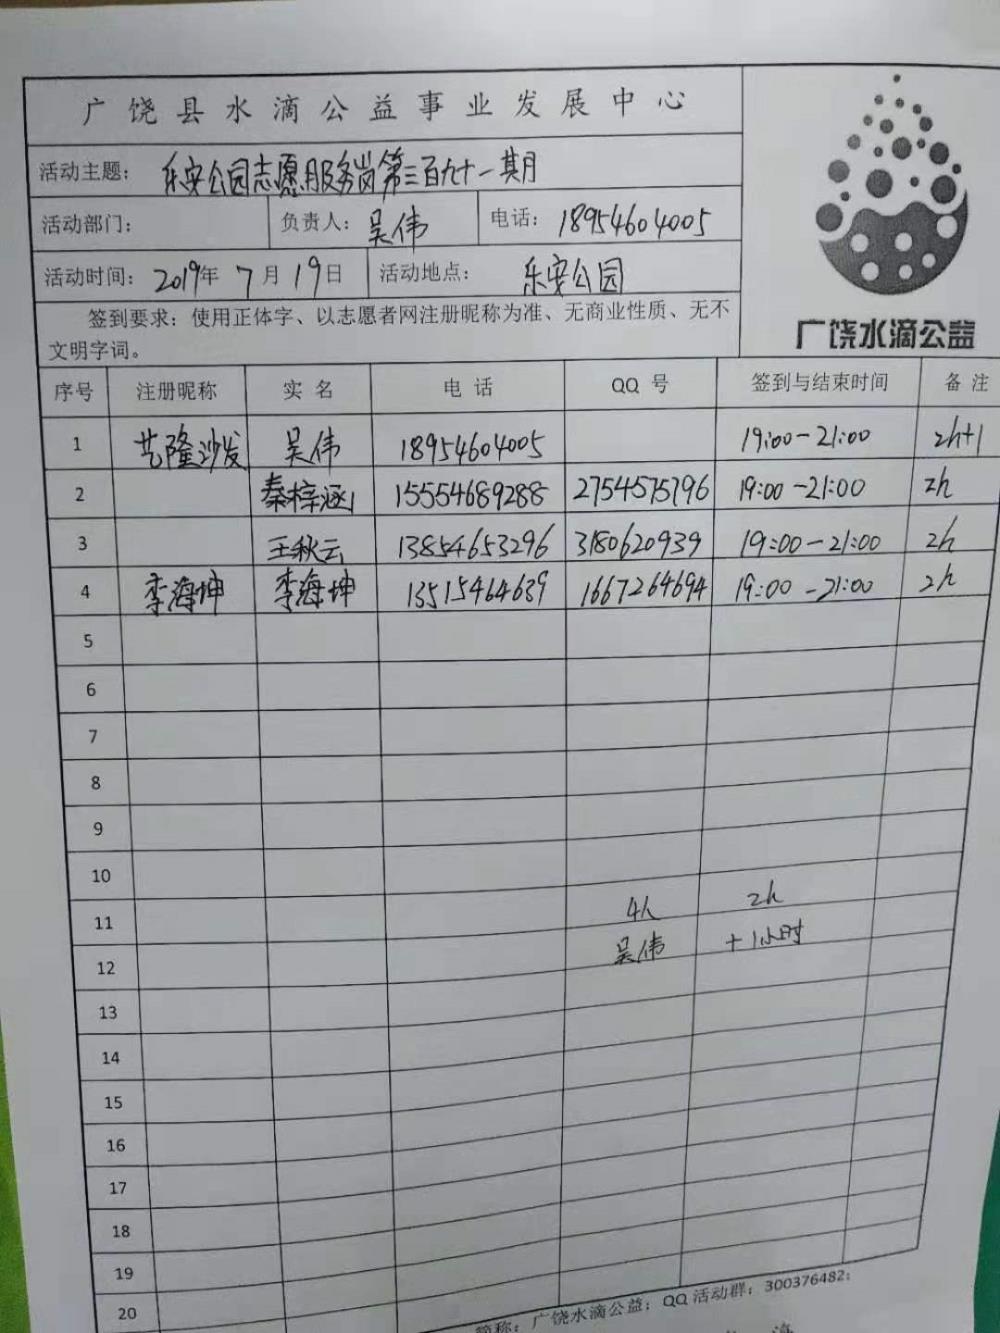 广饶县水滴公益事业发展中心
活动主题：乐安公园志愿服务岗第三百九十一期月
活动部门： 负责人：吴伟 电话：18954604005
活动时间：2019年7月19日 活动地点：乐安公园
签到要求：使用正体字、以志愿者网注册昵称为准、无商业性质、无不
文明字词。
广饶水滴公益
序号 注册昵称 实名 电话 QQ号 签到与结束时间 备注
1 艺隆沙发 吴伟 18954604005 19:00-21:00 2h+1
2 秦梓涵 15554689288 2754575796 19:00-21:00 2h
3 王秋云 13854653296 3180620939 19:00-21:00 2h
4 李海坤 李海坤 13515464639 1667264694 19:00-21:00 2h
5
6
7
8
9
10
11 4h 2h
12 吴伟 +1小时
13
14
15
16
17
18
19
20
简称：广饶水滴公益；QQ活动群：300376482；